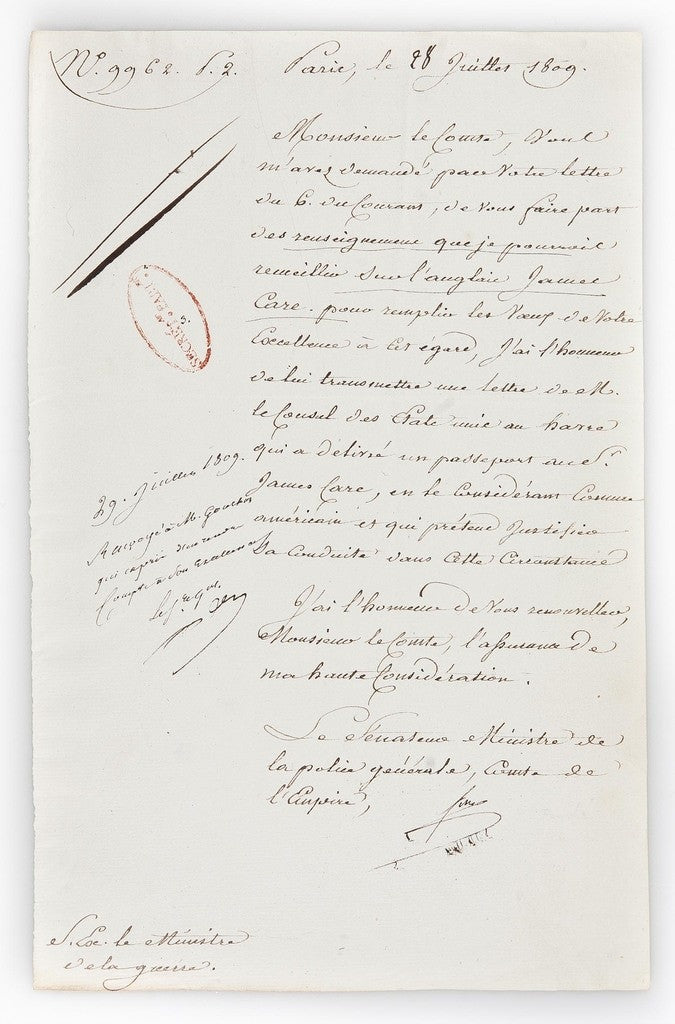 N.° 9962. P. 2.
Paris, le 28 Juillet 1809.
Monsieur le Comte, Vous
m'avez demandé par Votre lettre
du 6. du Courant, de Vous faire part
des renseignemens que je pourrois
recueillir sur l'anglais James
Care. pour remplir les Vœux de Votre
Excellence à cet égard, J'ai l'honneur
de lui transmettre une lettre de M.
le Consul des Etats unis au havre
qui a délivré un passeport au S.r
James Care, en le Considérant Comme
américain et qui prétend Justifier
Sa Conduite dans Cette Circonstance
J'ai l'honneur de Vous renouveller,
Monsieur le Comte, l'assurance de
ma haute Considération.
Le Sénateur Ministre de
la police générale, Comte de
l'Empire,
29. Juillet 1809.
Renvoyé à M.
qui
Compte à Son Excellence
Le S.re G.al
S. Exc. le Ministre
de la guerre.